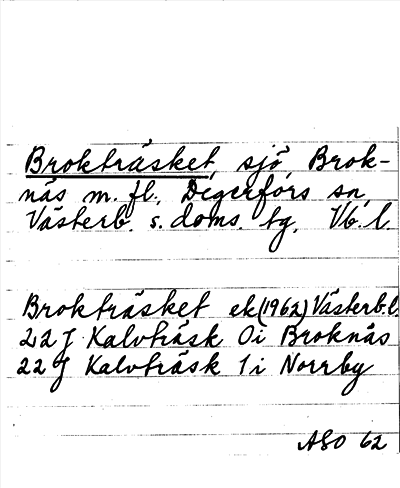 Brokträsket, sjö, Brok-
näs m. fl., Degerfors sn,
Västerb. s. doms. tg, Vb. l.
Brokträsket ek (1962) Västerb.l.
22 J Kalvträsk 0i Broknäs
22 J Kalvträsk 1i Norrby
ASO 62